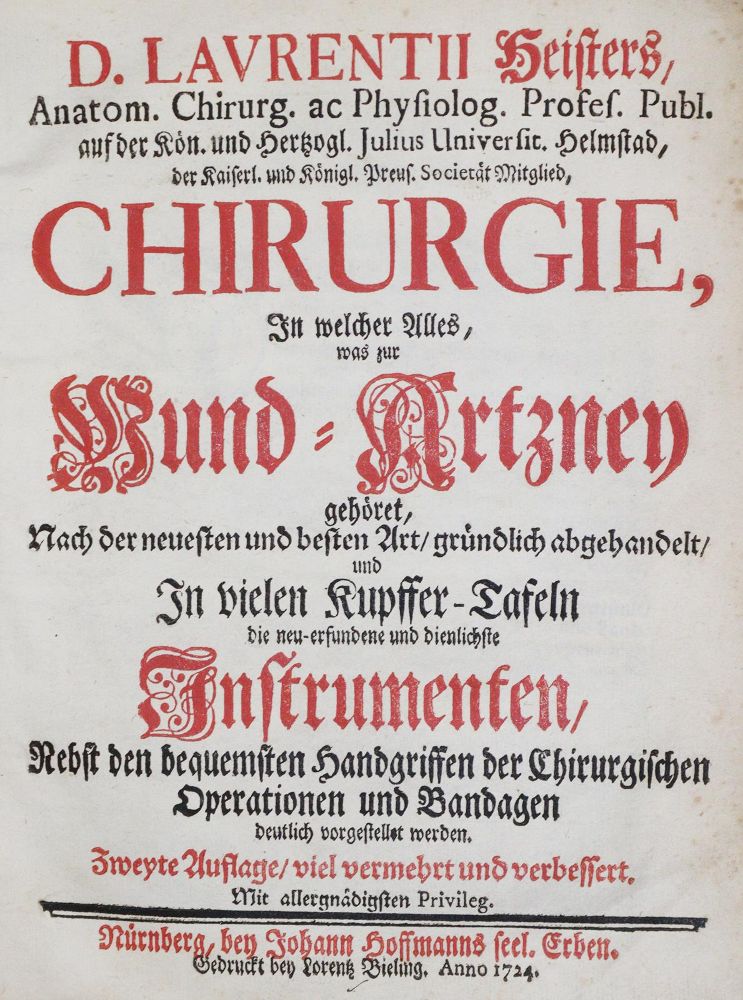 D. LAVRENTII Heisters,
Anatom. Chirurg. ac Physiolog. Profes. Publ.
auf der Kön. und Hertzogl. Julius Universit. Helmstad,
der Kaiserl. und Königl. Preus. Societät Mitglied,
CHIRURGIE,
In welcher Alles,
was zur
Wund-Artzney
gehöret,
Nach der neuesten und besten Art/ gründlich abgehandelt/
und
In vielen Kupffer-Tafeln
die neu-erfundene und dienlichste
Instrumenten/
Nebst den bequemsten Handgriffen der Chirurgischen
Operationen und Bandagen
deutlich vorgestellet werden.
Zweyte Auflage/ viel vermehrt und verbessert.
Mit allergnädigsten Privileg.
Nürnberg, bey Johann Hoffmanns seel. Erben.
Gedruckt bey Lorentz Bieling. Anno 1724.